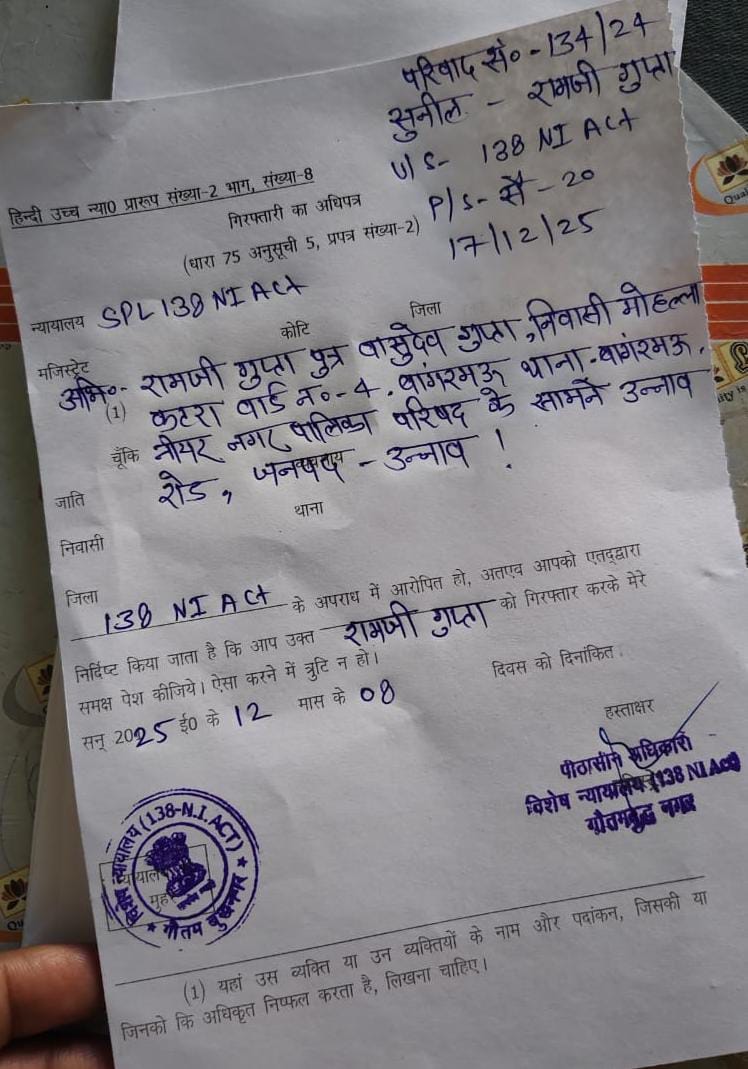 परिवाद सं० - 134/24
सुनील - रामजी गुप्ता
U/S- 138 NI ACT
P/S- सै - 20
17/12/25
हिन्दी उच्च न्या0 प्रारूप संख्या-2 भाग, संख्या-8
गिरफ्तारी का अधिपत्र
(धारा 75 अनुसूची 5, प्रपत्र संख्या-2)
न्यायालय SPL 138 NI ACT
कोटि जिला
मजिस्ट्रेट
अभि०- रामजी गुप्ता पुत्र वासुदेव गुप्ता, निवासी मोहल्ला
(1) कटरा वार्ड न०-4. बांगरमऊ थाना - बांगरमऊ,
चूँकि नीयर नगर पालिका परिषद के सामने उन्नाव
रोड, जनपद - उन्नाव !
जाति थाना
निवासी
जिला
138 NI ACT के अपराध में आरोपित हो, अतएव आपको एतद्द्वारा
निर्दिष्ट किया जाता है कि आप उक्त रामजी गुप्ता को गिरफ्तार करके मेरे
समक्ष पेश कीजिये। ऐसा करने में त्रुटि न हो।
सन् 2025 ई0 के 12 मास के 08 दिवस को दिनांकित
हस्ताक्षर
पीठासीन अधिकारी
विशेष न्यायालय (138 NI Act)
गौतमबुद्ध नगर
न्यायालय (138-N.I.ACT)
गौतम बुद्धनगर
(1) यहां उस व्यक्ति या उन व्यक्तियों के नाम और पदांकन, जिसकी या
जिनको कि अधिकृत निष्फल करता है, लिखना चाहिए।